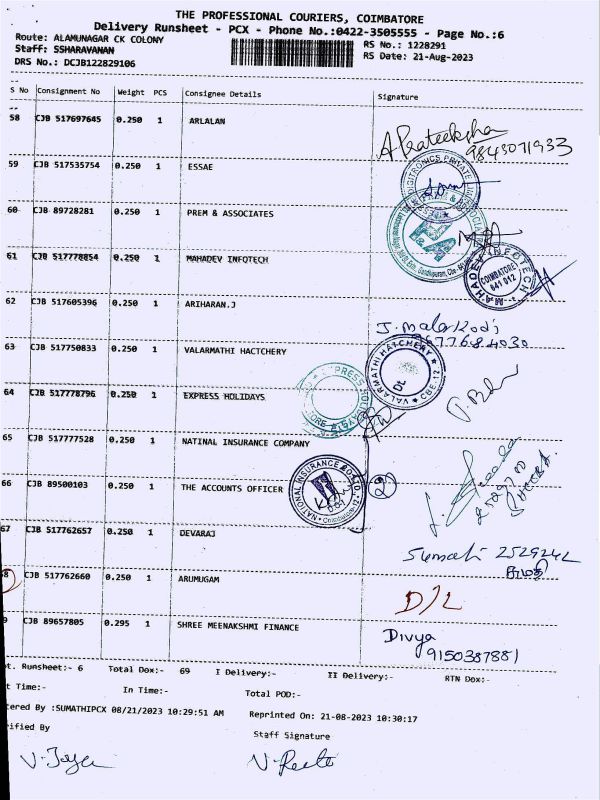 THE PROFESSIONAL COURIERS, COIMBATORE
Delivery Runsheet - PCX - Phone No.:0422-3505555 - Page No.:6
Route: ALAMUNAGAR CK COLONY
Staff: SSHARAVANAN
DRS No.: DCJB122829106
RS No.: 1228291
RS Date: 21-Aug-2023
S No Consignment No Weight PCS Consignee Details Signature
58 CJB 517697645 0.250 1 ARLALAN
A Prateeksha
9843071933
59 CJB 517535754 0.250 1 ESSAE
60 CJB 89728281 0.250 1 PREM & ASSOCIATES
61 CJB 517778854 0.250 1 MAHADEV INFOTECH
MAHADEV INFOTECH
COIMBATORE
641 012
62 CJB 517605396 0.250 1 ARIHARAN.J
J. malarkodi
63 CJB 517750833 0.250 1 VALARMATHI HACTCHERY
VALARMATHI HATCHERY
CBE-12
64 CJB 517778796 0.250 1 EXPRESS HOLIDAYS
65 CJB 517777528 0.250 1 NATINAL INSURANCE COMPANY
NATIONAL INSURANCE CO. LTD.
66 CJB 89500103 0.250 1 THE ACCOUNTS OFFICER
67 CJB 517762657 0.250 1 DEVARAJ
Sumathi
68 CJB 517762660 0.250 1 ARUMUGAM
D/L
9 CJB 89657805 0.295 1 SHREE MEENAKSHMI FINANCE
Divya
9150387881
ot. Runsheet:- 6 Total Dox:- 69 I Delivery:- II Delivery:- RTN Dox:-
t Time:- In Time:- Total POD:-
tered By :SUMATHIPCX 08/21/2023 10:29:51 AM Reprinted On: 21-08-2023 10:30:17
rified By Staff Signature